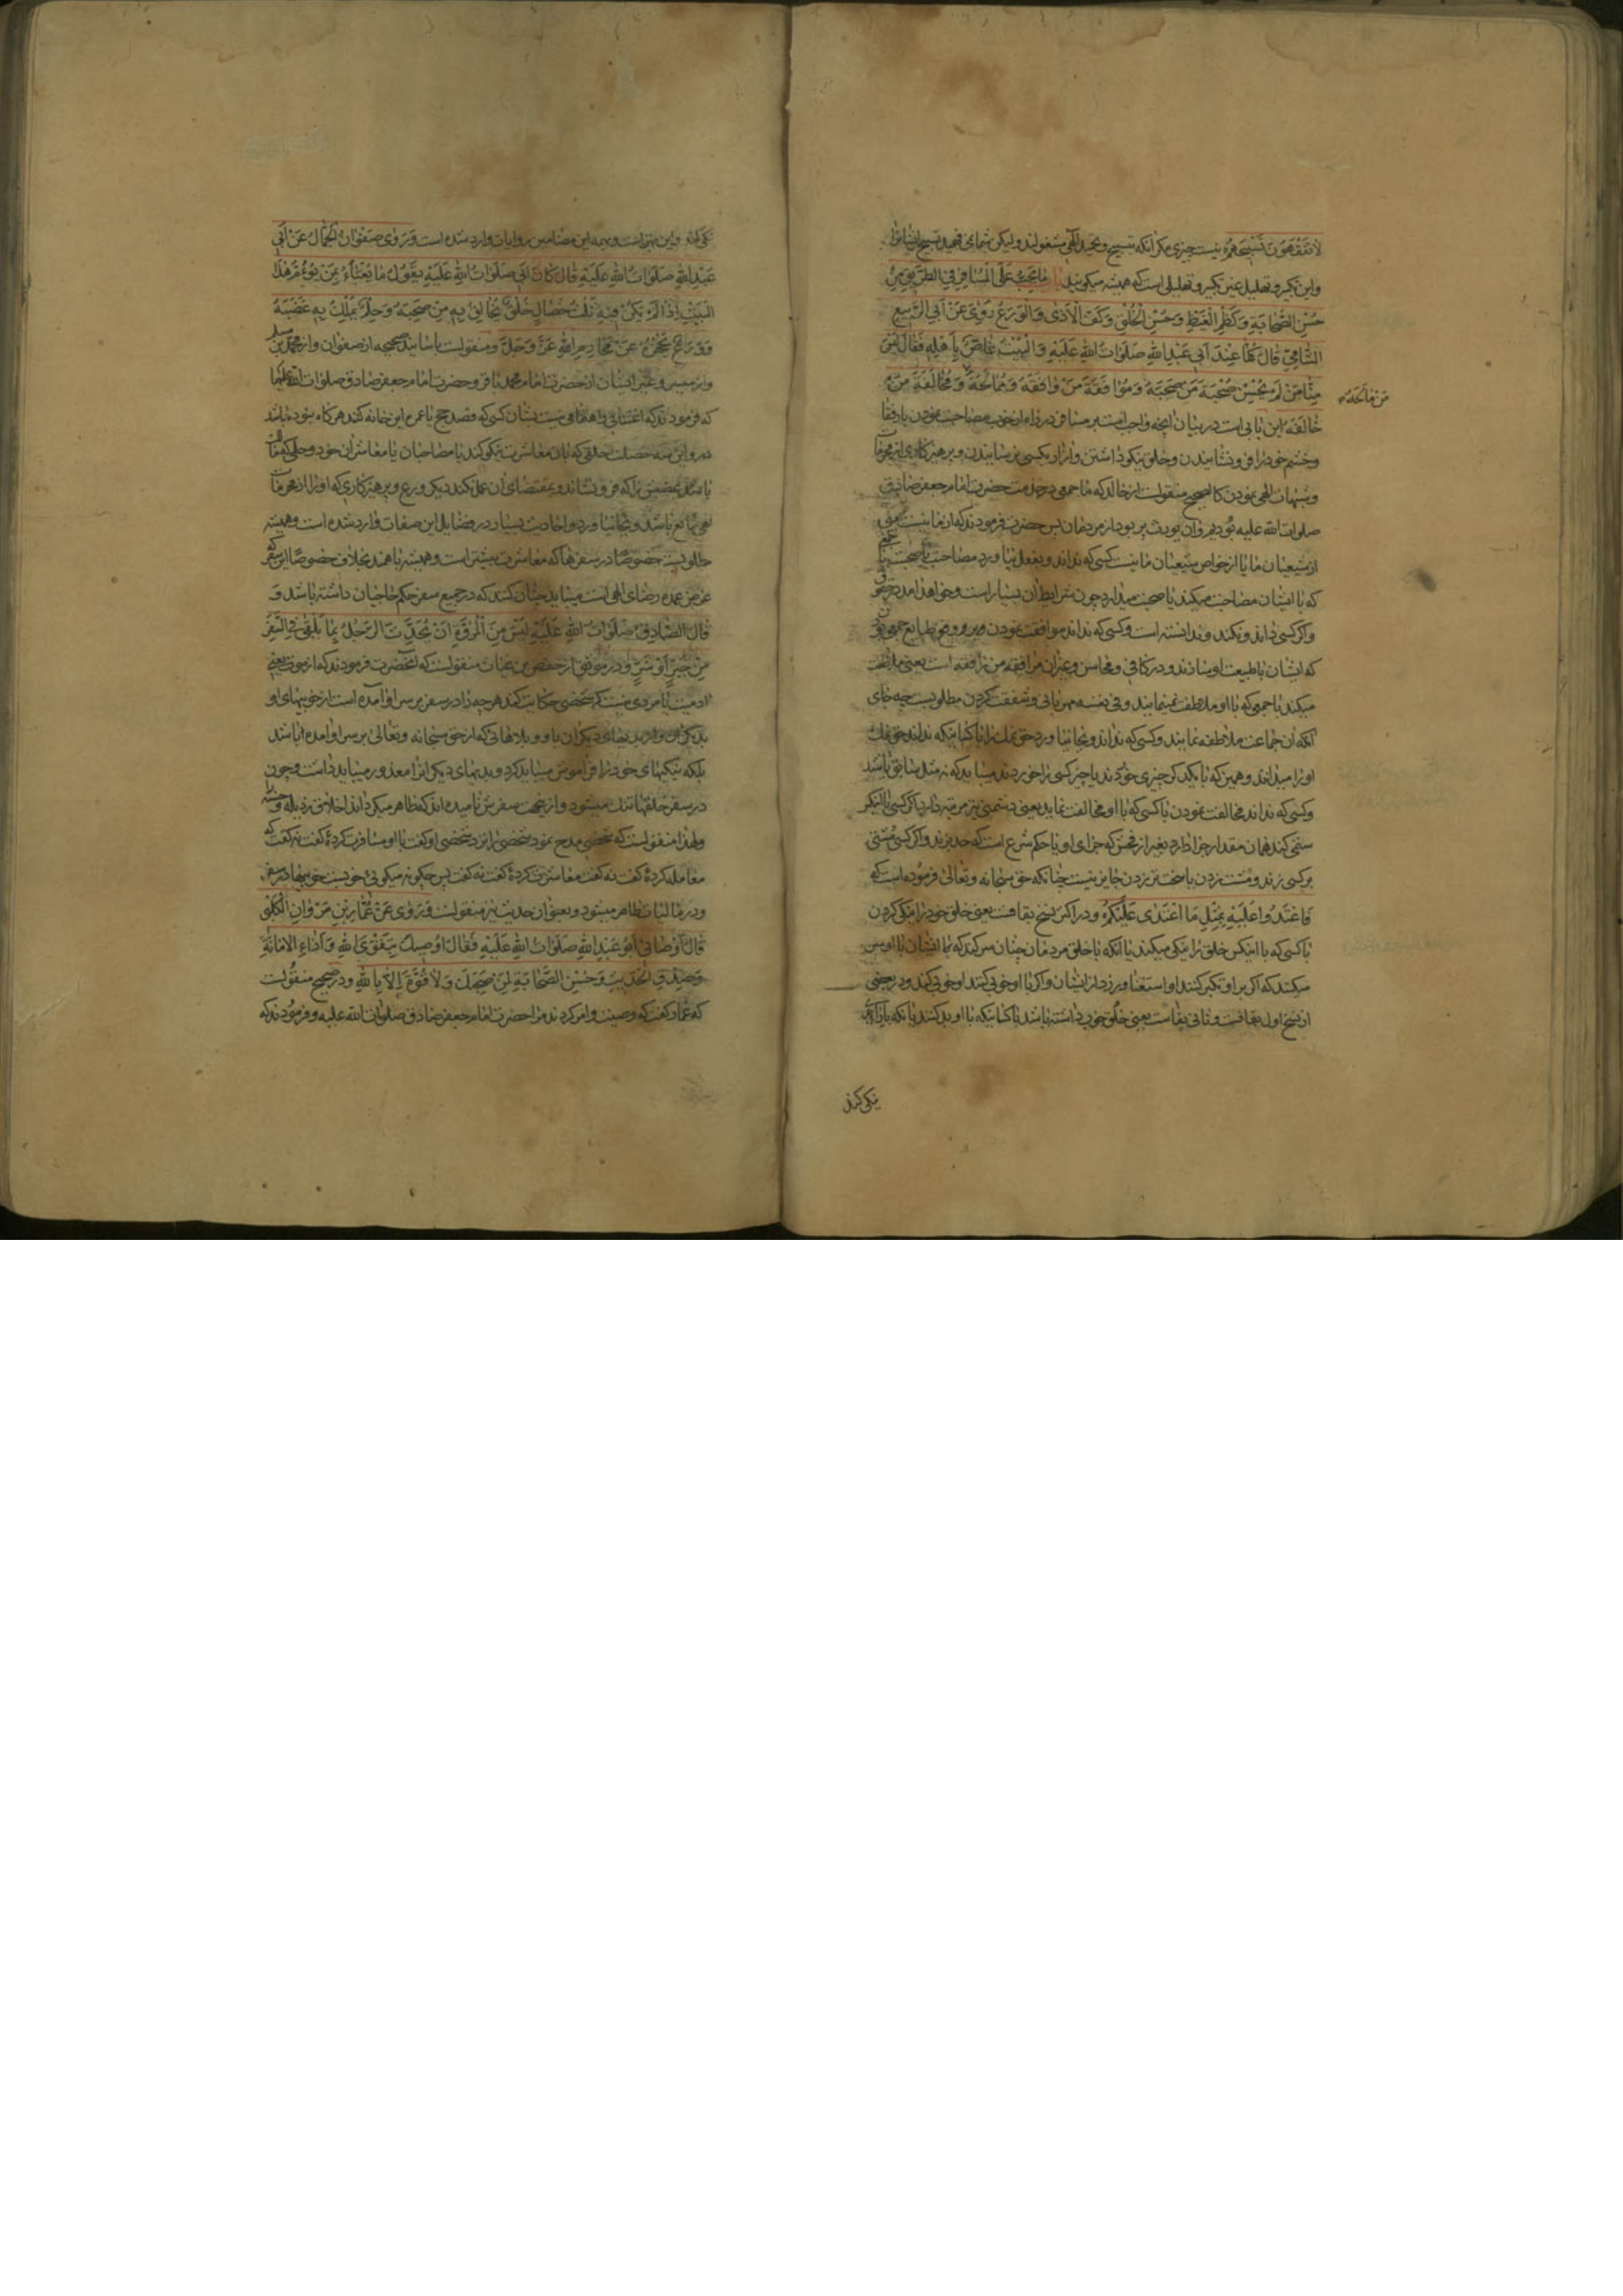 لاتفقهون تسبیحهم نیست چیزی مکر انکه بتسبیح و تحمید الهی مشغولند ولیکن شما نمی فهمید تسبیح ایشانرا
واین تکبیر و تهلیل عین تکبیر و تهلیلی است که همیشه میکویند باب ما یجب علی المسافر فی الطریق من
حسن الصحابة وکظم الغیظ وحسن الخلق وکف الاذی والورع روی عن ابی الربیع
الشامی قال کنا عند ابی عبدالله صلوات الله علیه والبیت غاص باهله فقال لیس
منا من لم یحسن صحبة من صحبه وموافقة من وافقه وممالحة ومخالقة من
من مالحه
خالقه این بابی است در بیان انچه واجب است بر مسافر در راه از خوب مصاحبت نمودن با رفقا
وخشم خود را فرو نشانیدن وخلق نیکو داشتن وازار بکسی نرسانیدن و پرهیزکاری از محرمات
وشبهات الهی نمودن کالصحیح منقولست از خالد که ما جمعی در خدمت حضرت امام جعفر صادق
صلوات الله علیه بودیم وان بیوت پر بود از مردمان پس حضرت فرمودند که از ما نیست یعنی
از شیعیان ما یا از خواص شیعیان ما نیست کسی که نداند وبفعل نیاورد مصاحبت یا صحبت
که با ایشان مصاحبت میکند یا صحبت میدارد چون شرایط ان بسیار است وخواهد امد
واکر کسی داند ونکند ندانسته است وکسی که نداند موافقت نمودن
که ایشان با طبیعت او بسازند ودر کافی ومحاسن وغیران مرافقة من رافقه است یعنی ملاطفت
میکند با جمعی که با او ملاطفت مینمایند وفی نفسه مهربانی وشفقت کردن مطلوبست چه جای
انکه ان جماعت ملاطفه نمایند وکسی که نداند وبجا نیاورد حق نمک را با کسانیکه نداند حق نمک
او را میدانند وهمین که با یکدیکر چیزی خوردند یا چیز کسی را خوردند میباید که نه مثل سابق باشد
وکسی که نداند مخالفت نمودن با کسی که با او مخالفت نماید یعنی دشمنی نیز مرتبه دارد اکر کسی با دیکر
ستمی کند همان مقدار جزا دارد بغیر از فحش که جزای او با حکم شرع است که حد بزند واکر کسی مشتی
بر کسی زند ومشت زدن یا سخت تر زدن جایز نیست چنانکه حق سبحانه وتعالی فرموده است که
فاعتدوا علیه بمثل ما اعتدی علیکم ودر اکثر نسخ بقافست یعنی خلق خود را نیکو کردن
با کسی که با اینکس خلق را نیکی میکند یا انکه با خلق مردمان چنان سر کند که با ایشان با او سر
میکنند که اکر بر او تکبر کنند او استغنا ورزد از ایشان واکر با او خوبی کنند او خوبی کند ودر بعضی
از نسخ اول بقافست وثانی بفاست یعنی خلق خوب داشته باشد با کسانیکه با او بد کنند یا انکه
نیکی کردن
نیکی کند واین بهتر است وبهمه این مضامین روایات وارد شده است وروی صفوان الجمال عن ابی
عبدالله صلوات الله علیه قال کان ابی صلوات الله علیه یقول ما یعبأ بمن یؤم هذا
البیت اذا لم یکن فیه ثلث خصال خلق یخالق به من صحبه وحلم یملک به غضبه
وورع یحجزه عن محارم الله عز وجل ومنقولست باسانید صحیحه از صفوان واز محمد بن مسلم
واز میسر وغیر ایشان از حضرت امام محمد باقر وحضرت امام جعفر صادق صلوات الله علیهما
که فرمودند که اعتنائی واهتمامی نیست بشان کسی که قصد حج یا عمره این خانه کند هرکاه نبوده باشد
در او این سه خصلت خلقی که بان معاشرت نیکو کند با مصاحبان یا معاشران خود وحلمی که
باشد غضبش را که فرو نشاند وبمقتضای ان عمل نکند دیکر ورع و پرهیزکاری که او را از محرمات
الهی مانع باشد وبجا نیاورد واحادیث بسیار در فضایل این صفات وارد شده است وهمیشه
مطلوبست خصوصا در سفرها که معاشرت بیشتر است وهمیشه با همند بخلاف حضر خصوصا این سفر که
غرض عمده رضای الهی است میباید چنان کنند که در جمیع سفر حکم حاجیان داشته باشد و
قال الصادق صلوات الله علیه لیس من المروة ان یحدث الرجل بما یلقی فی السفر
من خیر او شر ودر موثق از حفص بن غیاث منقولست که انحضرت فرمودند که از مروت یعنی
ادمیت یا مردی نیست که شخصی حکایت کند هرچه را در سفر بر سر او امده است از خوبیهای او
بدیکران واز بدیهای دیکران باو وبلاهائی که از حق سبحانه وتعالی بر سر او امده باشد
بلکه نیکیهای خود را فراموش میباید کرد وبدیهای دیکرانرا معذور میباید داشت وچون
در سفر خلقها تنک میشود واز انجهت سفرش نامیده اند که ظاهر میکرداند اخلاق رذیله وحسنه را
ولهذا منقولست که شخصی مدح نمود شخصی را نزد شخصی او کفت با او مسافرت کردهٔ کفت نه کفت که
معامله کردهٔ کفت نه کفت معاشرت کردهٔ کفت نه کفت پس چکونه میکوئی خوبست خوبیها در سفر
ودر مالیات ظاهر میشود وبعنوان حدیث نیز منقولست وروی عن عمار بن مروان الکلبی
قال اوصانی ابو عبدالله صلوات الله علیه فقال اوصیک بتقوی الله واداء الامانة
وصدق الحدیث وحسن الصحابة لمن صحبک ولا قوة الا بالله ودر صحیح منقولست
که عمار کفت که وصیت وامر کردند مرا حضرت امام جعفر صادق صلوات الله علیه وفرمودند که